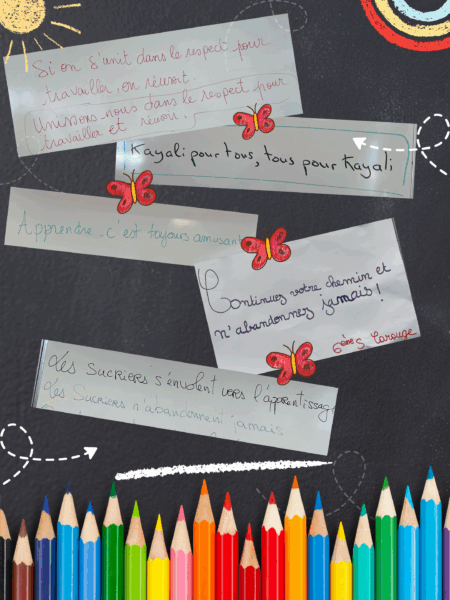 Si on s'unit dans le respect pour
travailler, on réussit.
Unissons-nous dans le respect pour
travailler et réussir.
Kayali pour tous, tous pour Kayali
Apprendre, c'est toujours amusant
Continuez votre chemin et
n'abandonnez jamais !
6ème S. Carouge
Les Sucriers s'envolent vers l'apprentissag
Les Sucriers n'abandonnent jamais